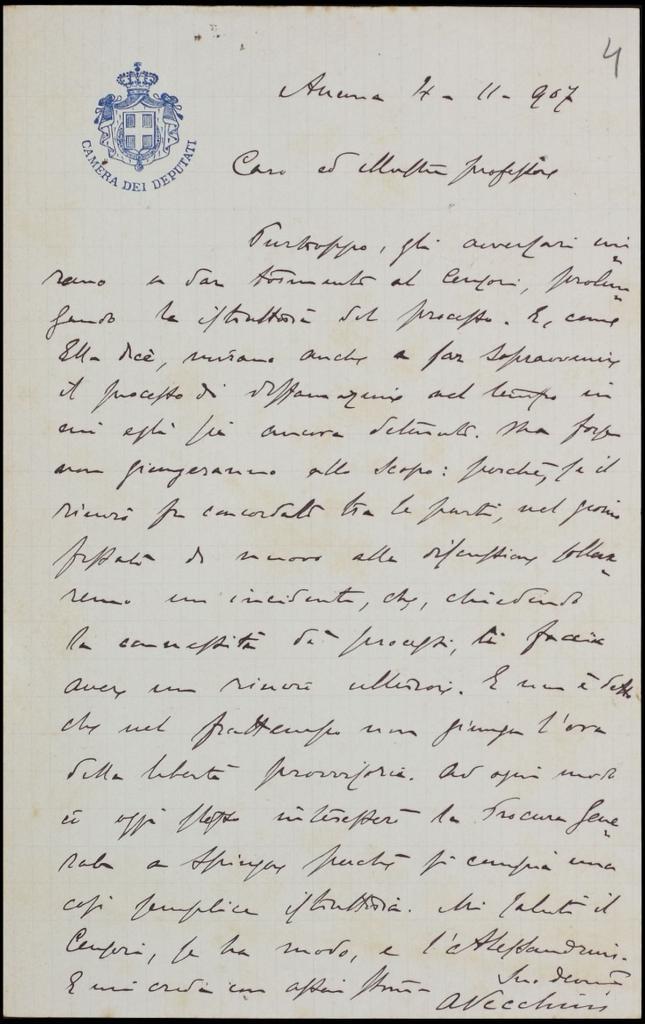 4
CAMERA DEI DEPUTATI
Ancona 4 - 11 - 907
Caro ed illustre professore
Purtroppo, gli avversari mi
rano a dar tormento al Censori, prolun
gando la istruttoria del processo. E, come
Ella dice, mirano anche a far sopravvenire
il processo di diffamazione nel tempo in
cui egli sia ancora detenuto. Ma forse
non giungeranno allo scopo: perchè, se il
rinvio fu concordato tra le parti, nel giorno
fissato di nuovo alla discussione solleve
remo un incidente, che, chiedendo
la connessità dei processi, ci faccia
avere un rinvio ulteriore. E non è detto
che nel frattempo non giunga l'ora
della libertà provvisoria. Ad ogni modo
io oggi stesso interesserò la Procura Gene
rale a spingere perchè si compia una
così semplice istruttoria. Mi saluti il
Censori, se ha modo, e l'Alessandrini.
E mi creda con ogni stima
Suo devmo
AVecchini